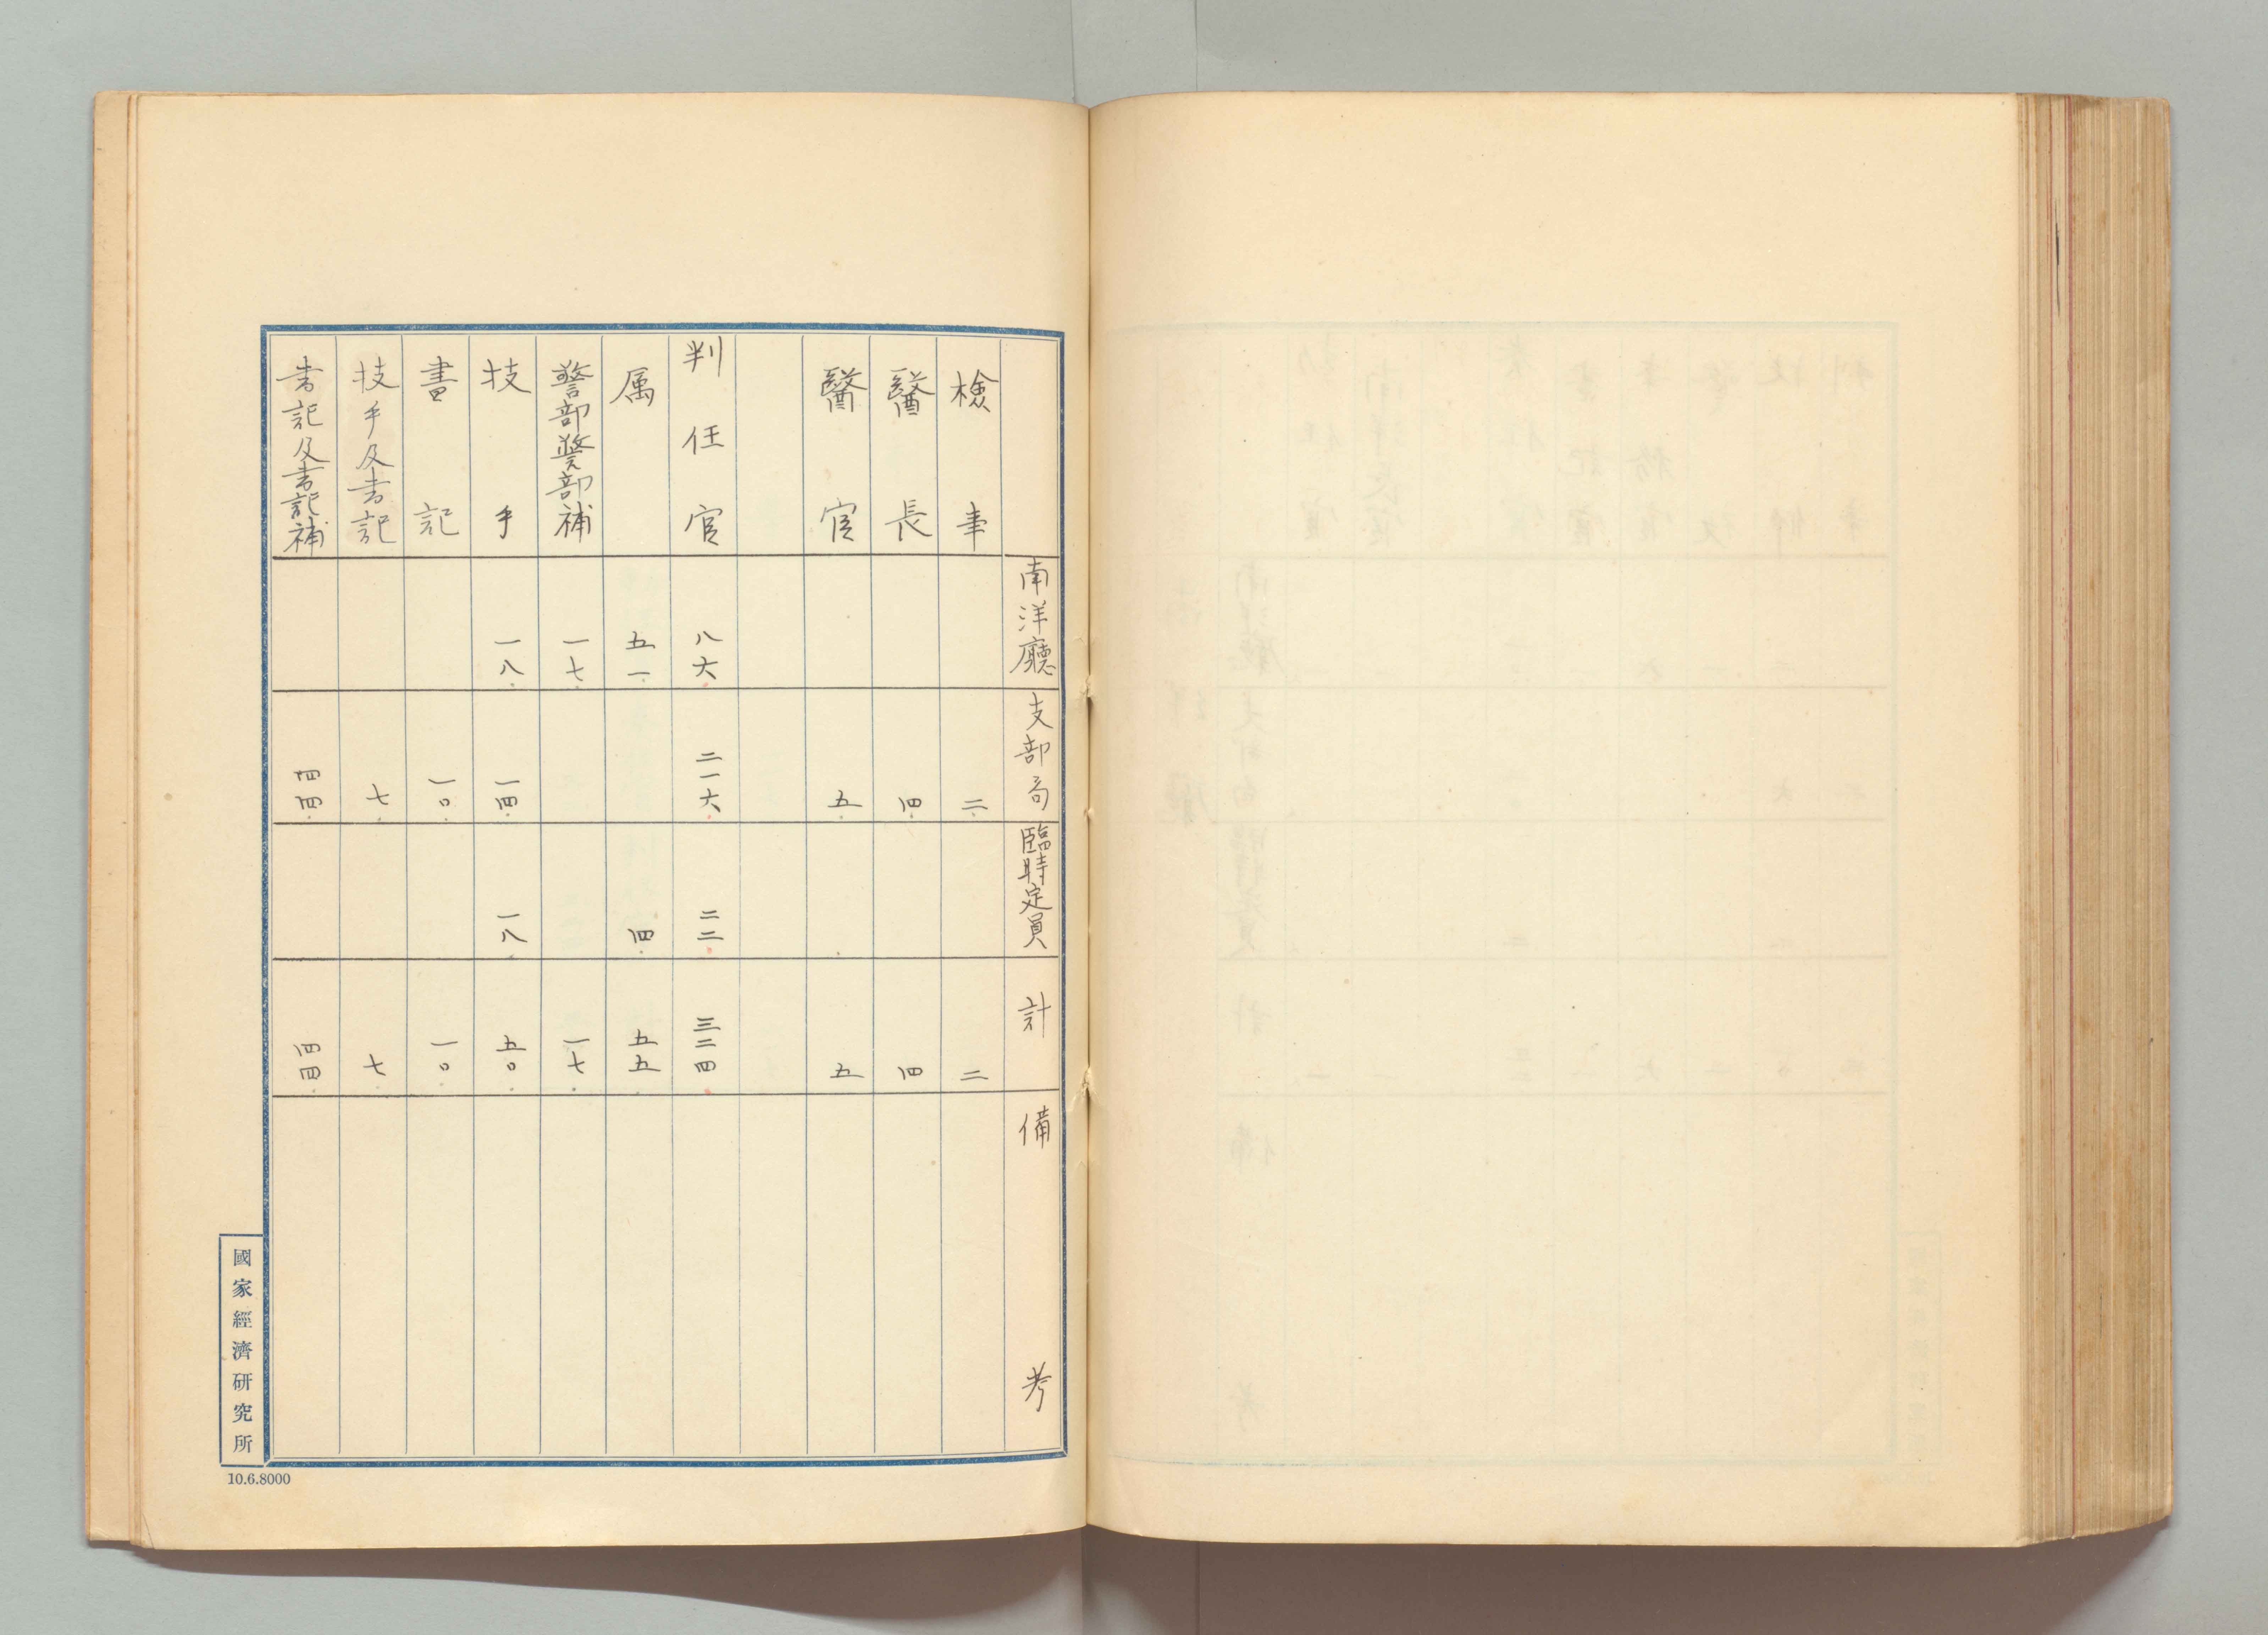 南洋廳 支部局 臨時定員 計 備考
檢事 二 二
醫長 四 四
醫官 五 五
判任官 八六 二一六 二二 三二四
属 五一 四 五五
警部警部補 一七 一七
技手 一八 一四 一八 五〇
書記 一〇 一〇
技手及書記 七 七
書記及書記補 四四 四四
國家經濟研究所
10.6.8000